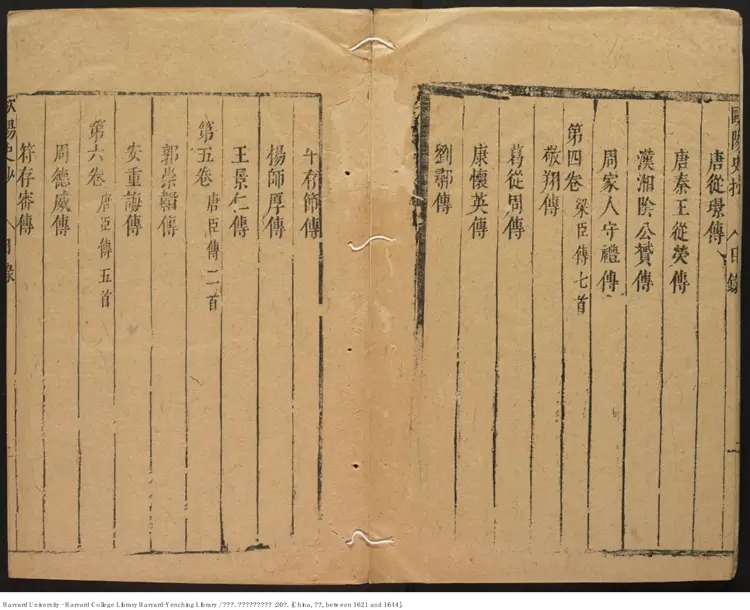 歐陽史抄 目錄
唐從璟傳
唐秦王從榮傳
漢湘陰公贇傳
周家人守禮傳
第四卷 梁臣傳七首
敬翔傳
葛從周傳
康懷英傳
劉鄩傳
牛存節傳
楊師厚傳
王景仁傳
第五卷 唐臣傳二首
郭崇韜傳
安重誨傳
第六卷 唐臣傳五首
周德威傳
符存審傳
歐陽史抄 目錄
Harvard University - Harvard College Library Harvard-Yenching Library / ???. ????????? 20?. [China, ??, between 1621 and 1644].